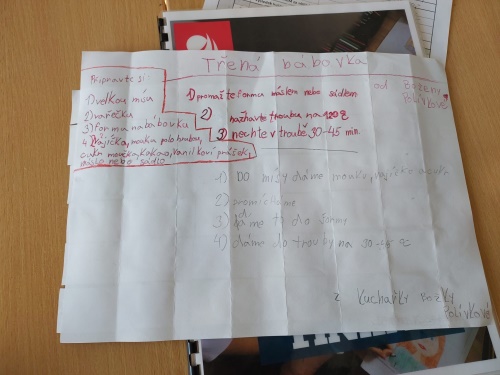 Třená bábovka
Připravte si:
1) velkou mísu
2) vařečku
3) forma na bábovku
4) Vajíčka, mouka polohrubou,
cukr moučka, kakao, vanilkoví prášek,
máslo nebo sádlo
od Boženy
Polívkové
1) promažte formu máslem nebo sádlem
2)
nažhavte troubu na 120°
3) nechte v troubě 30-45 min.
1) DO mísy dáme mouku, vajíčka
2) promícháme
3) dáme to do formy
4) dáme do trouby na 30-45 °C
z kuchařky
Polívkové